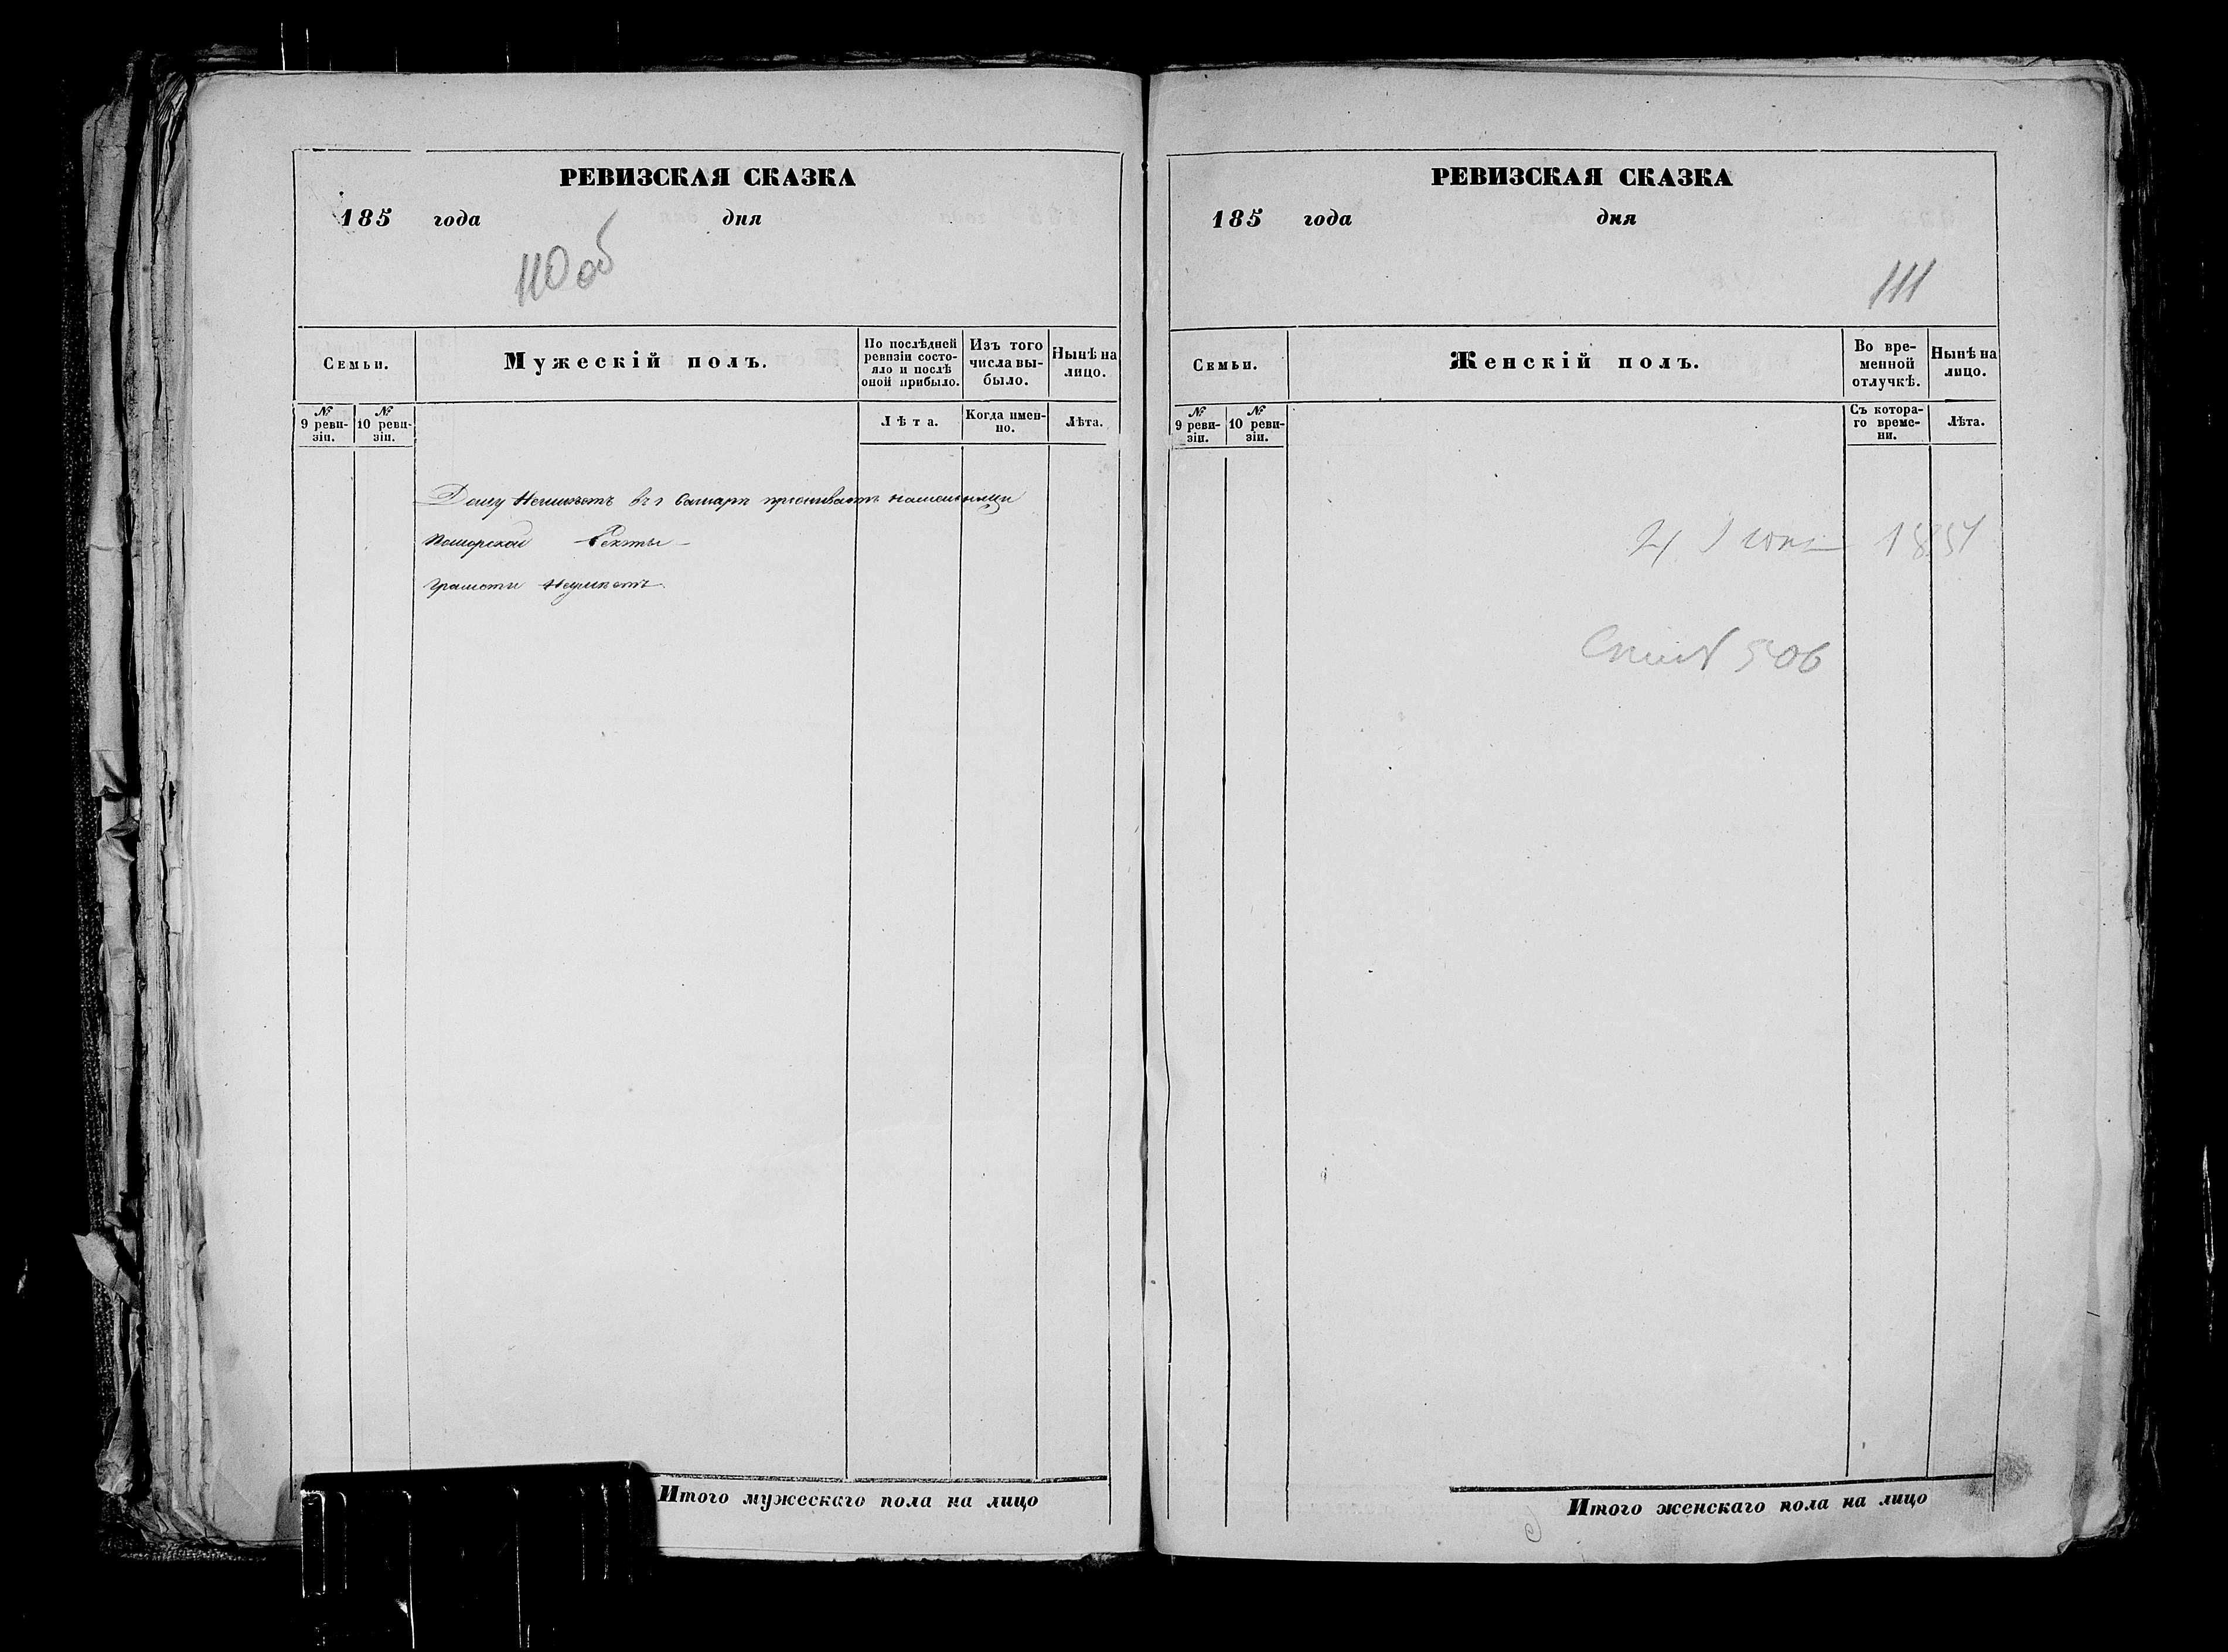 РЕВИЗСКАЯ СКАЗКА
185 года дня
110 об
Семьи.
Мужескій полъ.
По послѣдней ревизіи состояло и послѣ оной прибыло.
Изъ того числа выбыло.
Нынѣ на лицо.
№ 9 ревизіи.
№ 10 ревизіи.
Лѣта.
Когда именно.
Лѣта.
Дому Неимѣетъ въ г Самарѣ проживаетъ
Поморской Секты
Грамоти Неумѣетъ.
Итого мужескаго пола на лицо
РЕВИЗСКАЯ СКАЗКА
185 года дня
111
Семьи.
Женскій полъ.
Во временной отлучкѣ.
Нынѣ на лицо.
№ 9 ревизіи.
№ 10 ревизіи.
Съ котораго времени.
Лѣта.
506
Итого женскаго пола на лицо